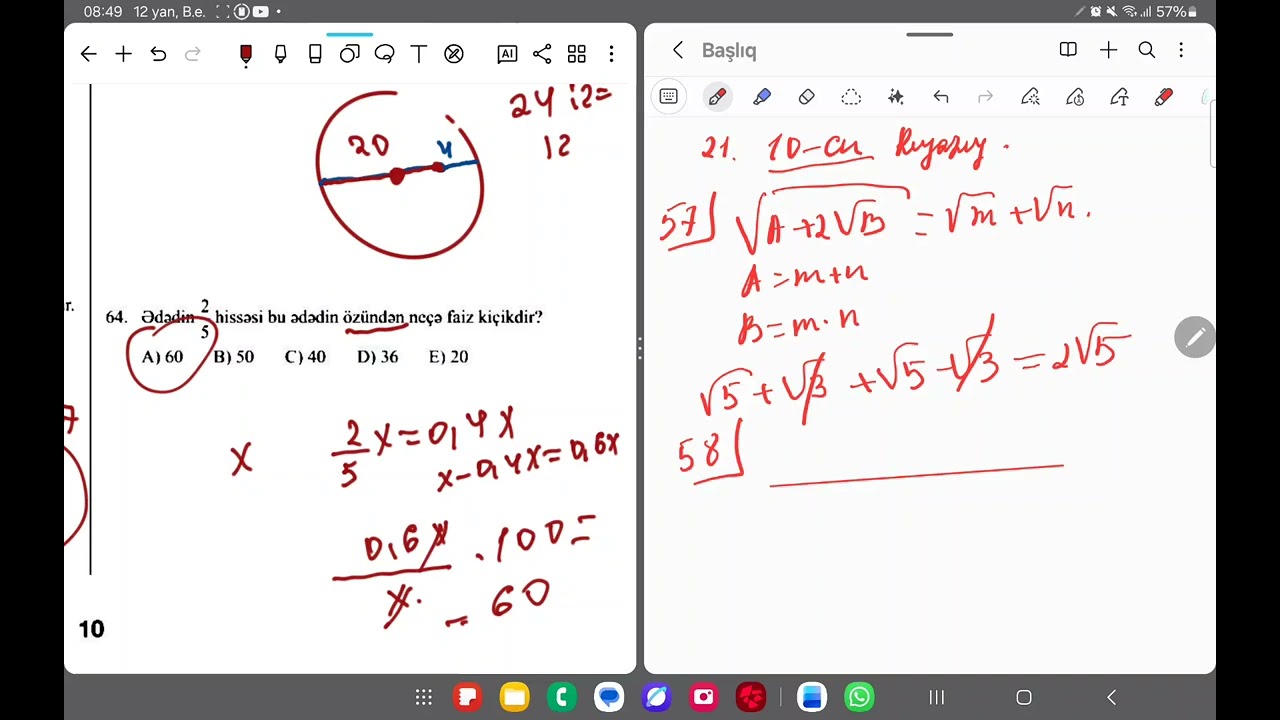 08:49 12 yan, B.e. 57%
AI
T
Başlıq
20 4
24 iz=
12
r.
64. Ədədin 2/5 hissəsi bu ədədin özündən neçə faiz kiçikdir?
A) 60 B) 50 C) 40 D) 36 E) 20
7
x 2/5 x = 0,4x
x - 0,4x = 0,6x
0,6x/x . 100 =
= 60
10
21. 10-cu
57] √(A+2√B) = √m + √n.
A = m+n
B = m·n
√5 + √3 + √5 - √3 = 2√5
58]